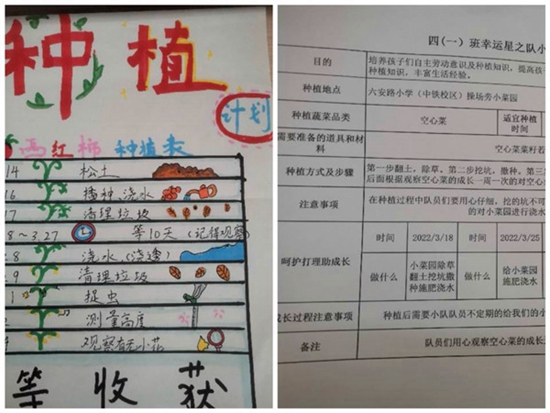 种植
计划
西红柿 种植表
14 松土
16 播种、浇水
17 清理垃圾
8~3.27 等10天 (记得观察
8 浇水(浇透)
9 清理垃圾
1 捉虫
测量高度
观察有无小花
等 收 获
四(一)班幸运星之队小
目的 培养孩子们自主劳动意识及种植知识，提高孩子
种植知识，丰富生活经验。
种植地点 六安路小学（中铁校区）操场旁小菜园
种植蔬菜品类 空心菜 适宜种植
时间
需要准备的道具和材
料 空心菜菜籽若
种植方式及步骤 第一步翻土，除草。第二步挖坑，撒种。第三
后面根据观察空心菜的成长一周一次的对空心
注意事项 在种植过程中队员们要用心仔细，挖的坑不可
的对小菜园进行浇水
呵护打理助成长 时间 2022/3/18 时间 2022/3/25
做什么 小菜园除草
翻土挖坑撒
种施肥浇水 做什么 给小菜园
施肥浇水
成长过程注意事项 种植后需要小队队员不定期的给我们的小
备注 队员们用心观察空心菜的成